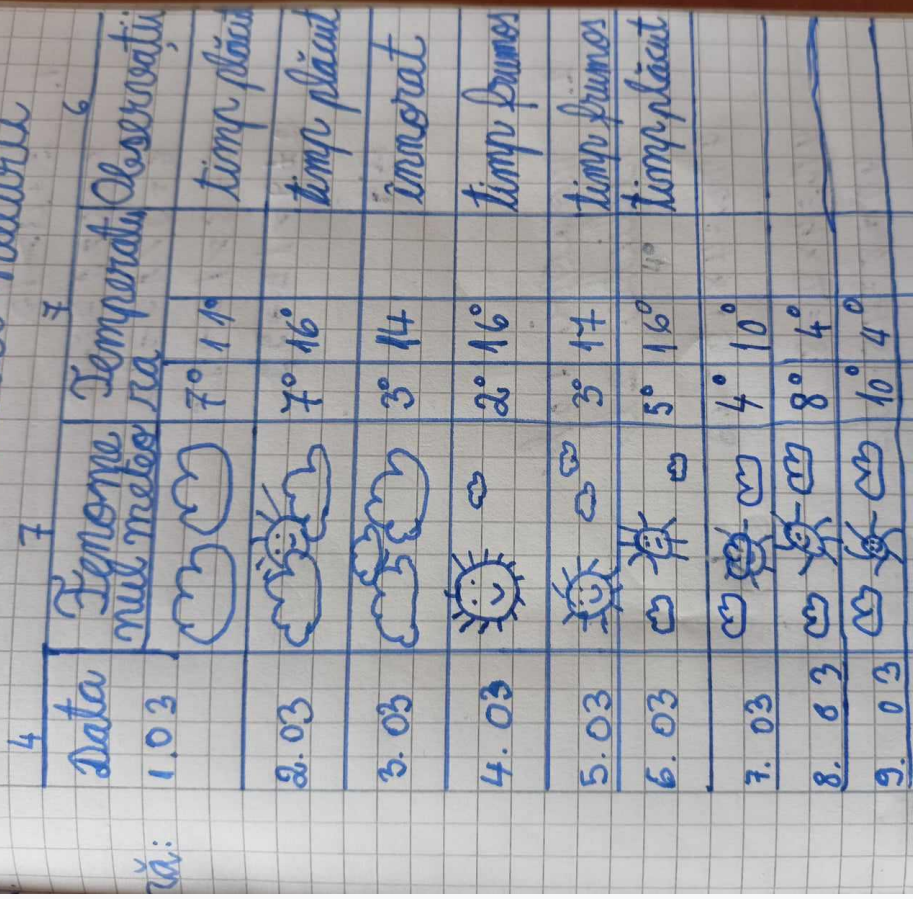 naturii
4 7 7 6
Data Fenome Temperatu Observații
nul meteo ra
ră:
1.03 7° 11° timp plăcut
2.03 7° 16° timp plăcut
3.03 3° 14 înnorat
4.03 2° 16° timp frumos
5.03 3° 17 timp frumos
6.03 5° 16° timp plăcut
7.03 4° 10°
8.03 8° 4°
9.03 10° 4°